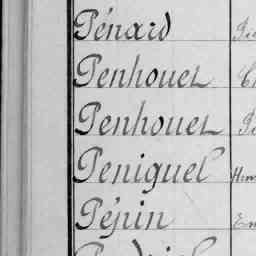 Pénard
Penhouet
Penhouet
Peniguel
Pépin